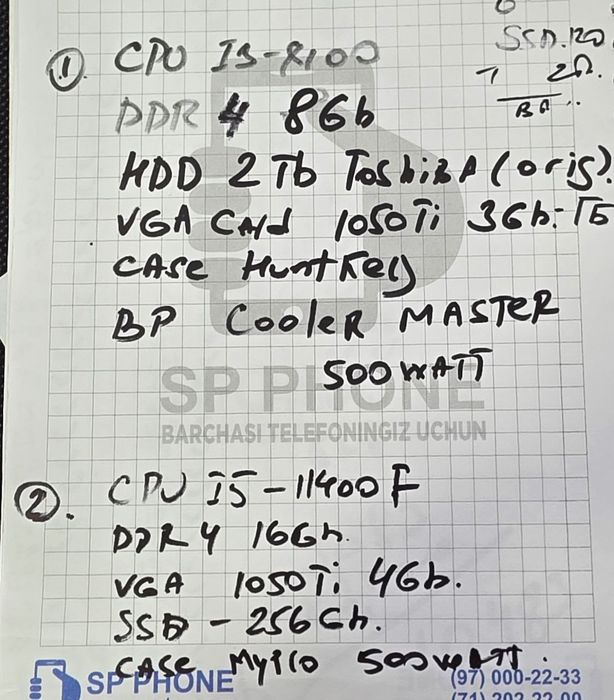 SSD.120
① CPU I3-8100
DDR 4 8Gb
HDD 2 Tb Toshiba (orig).
VGA CArd 1050Ti 3Gb.
CASe HuntKey
BP CooleR MASTeR
500 WATT
SP PHONE
BARCHASI TELEFONINGIZ UCHUN
②. CPU I5-11400F
DDR 4 16Gb.
VGA 1050Ti 4Gb.
SSD - 256Gb.
CASe 500 WATT.
SP PHONE
(97) 000-22-33